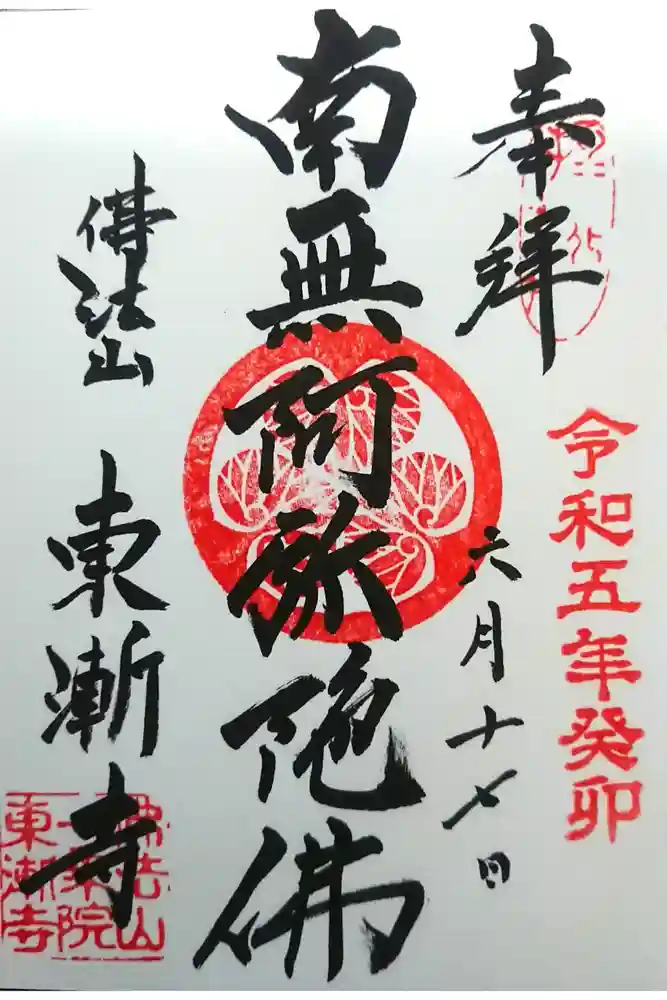 奉拝
令和五年癸卯
六月十七日
南無阿弥陀佛
佛法山
東漸寺
佛法山
一乗院
東漸寺